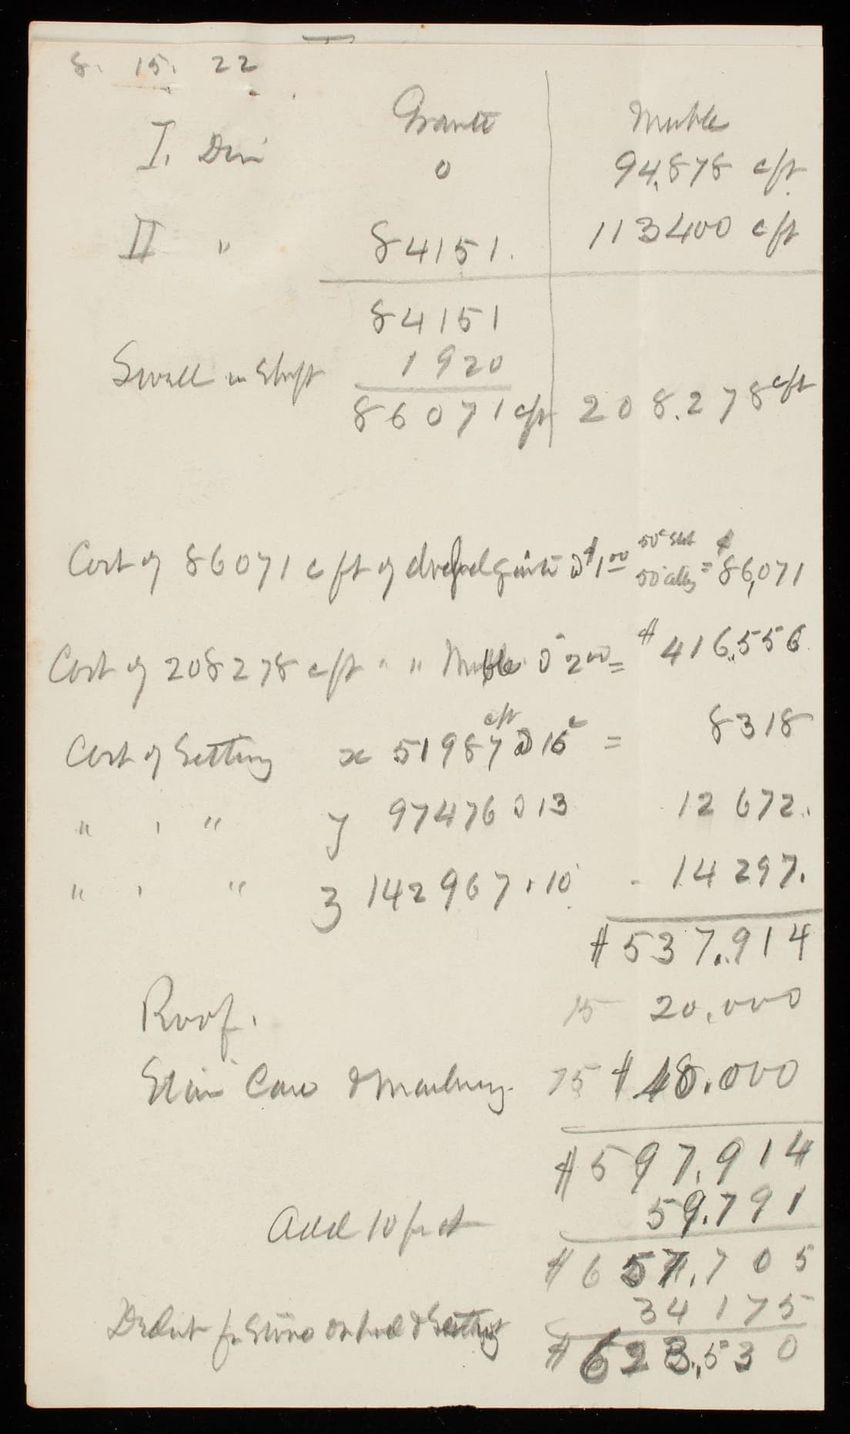 8. 15. 22
Granite Marble
I. Div 0 94,878 cft
II " 84151. 113400 cft
84151
Small in Shaft 1920
86071 cft 208.278 cft
Cost of 86071 c ft of dressed granite @ $1.00 50c Stk 50c = $86,071
Cost of 208278 cft " " Marble @ 2.00 = $416,556
Cost of Setting x 51987 cft @ 16c = 8318
" " " y 97476 @ 13 12672.
" " " z 142967 " 10 14297.
$537.914
Roof. 15 20,000
Stair Case & 75 $40.000
$597,914
Add 10 per ct 59.791
$657,705
Deduct for Stone on hand & Setting 34175
$623,530